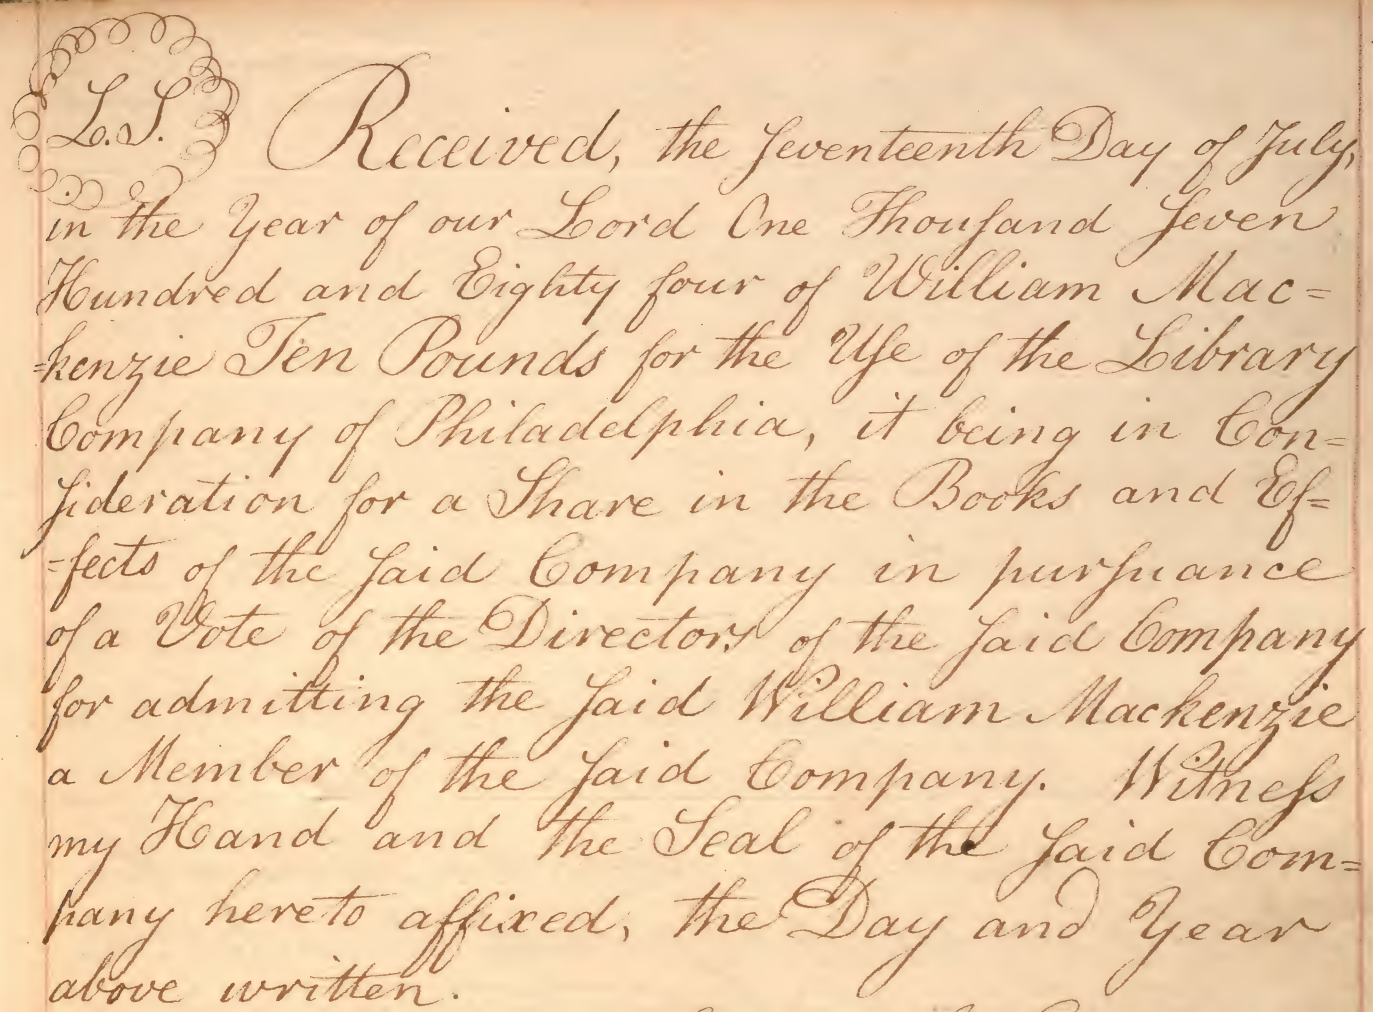 L.S.
Received, the ſeventeenth Day of July,
in the Year of our Lord One Thouſand ſeven
Hundred and Eighty four of William Mac=
=kenzie Ten Pounds for the Uſe of the Library
Company of Philadelphia, it being in Con=
ſideration for a Share in the Books and Ef=
=fects of the ſaid Company in purſuance
of a Vote of the Directors of the ſaid Company
for admitting the ſaid William Mackenzie
a Member of the ſaid Company. Witneſs
my Hand and the Seal of the ſaid Com=
pany hereto affixed, the Day and Year
above written.